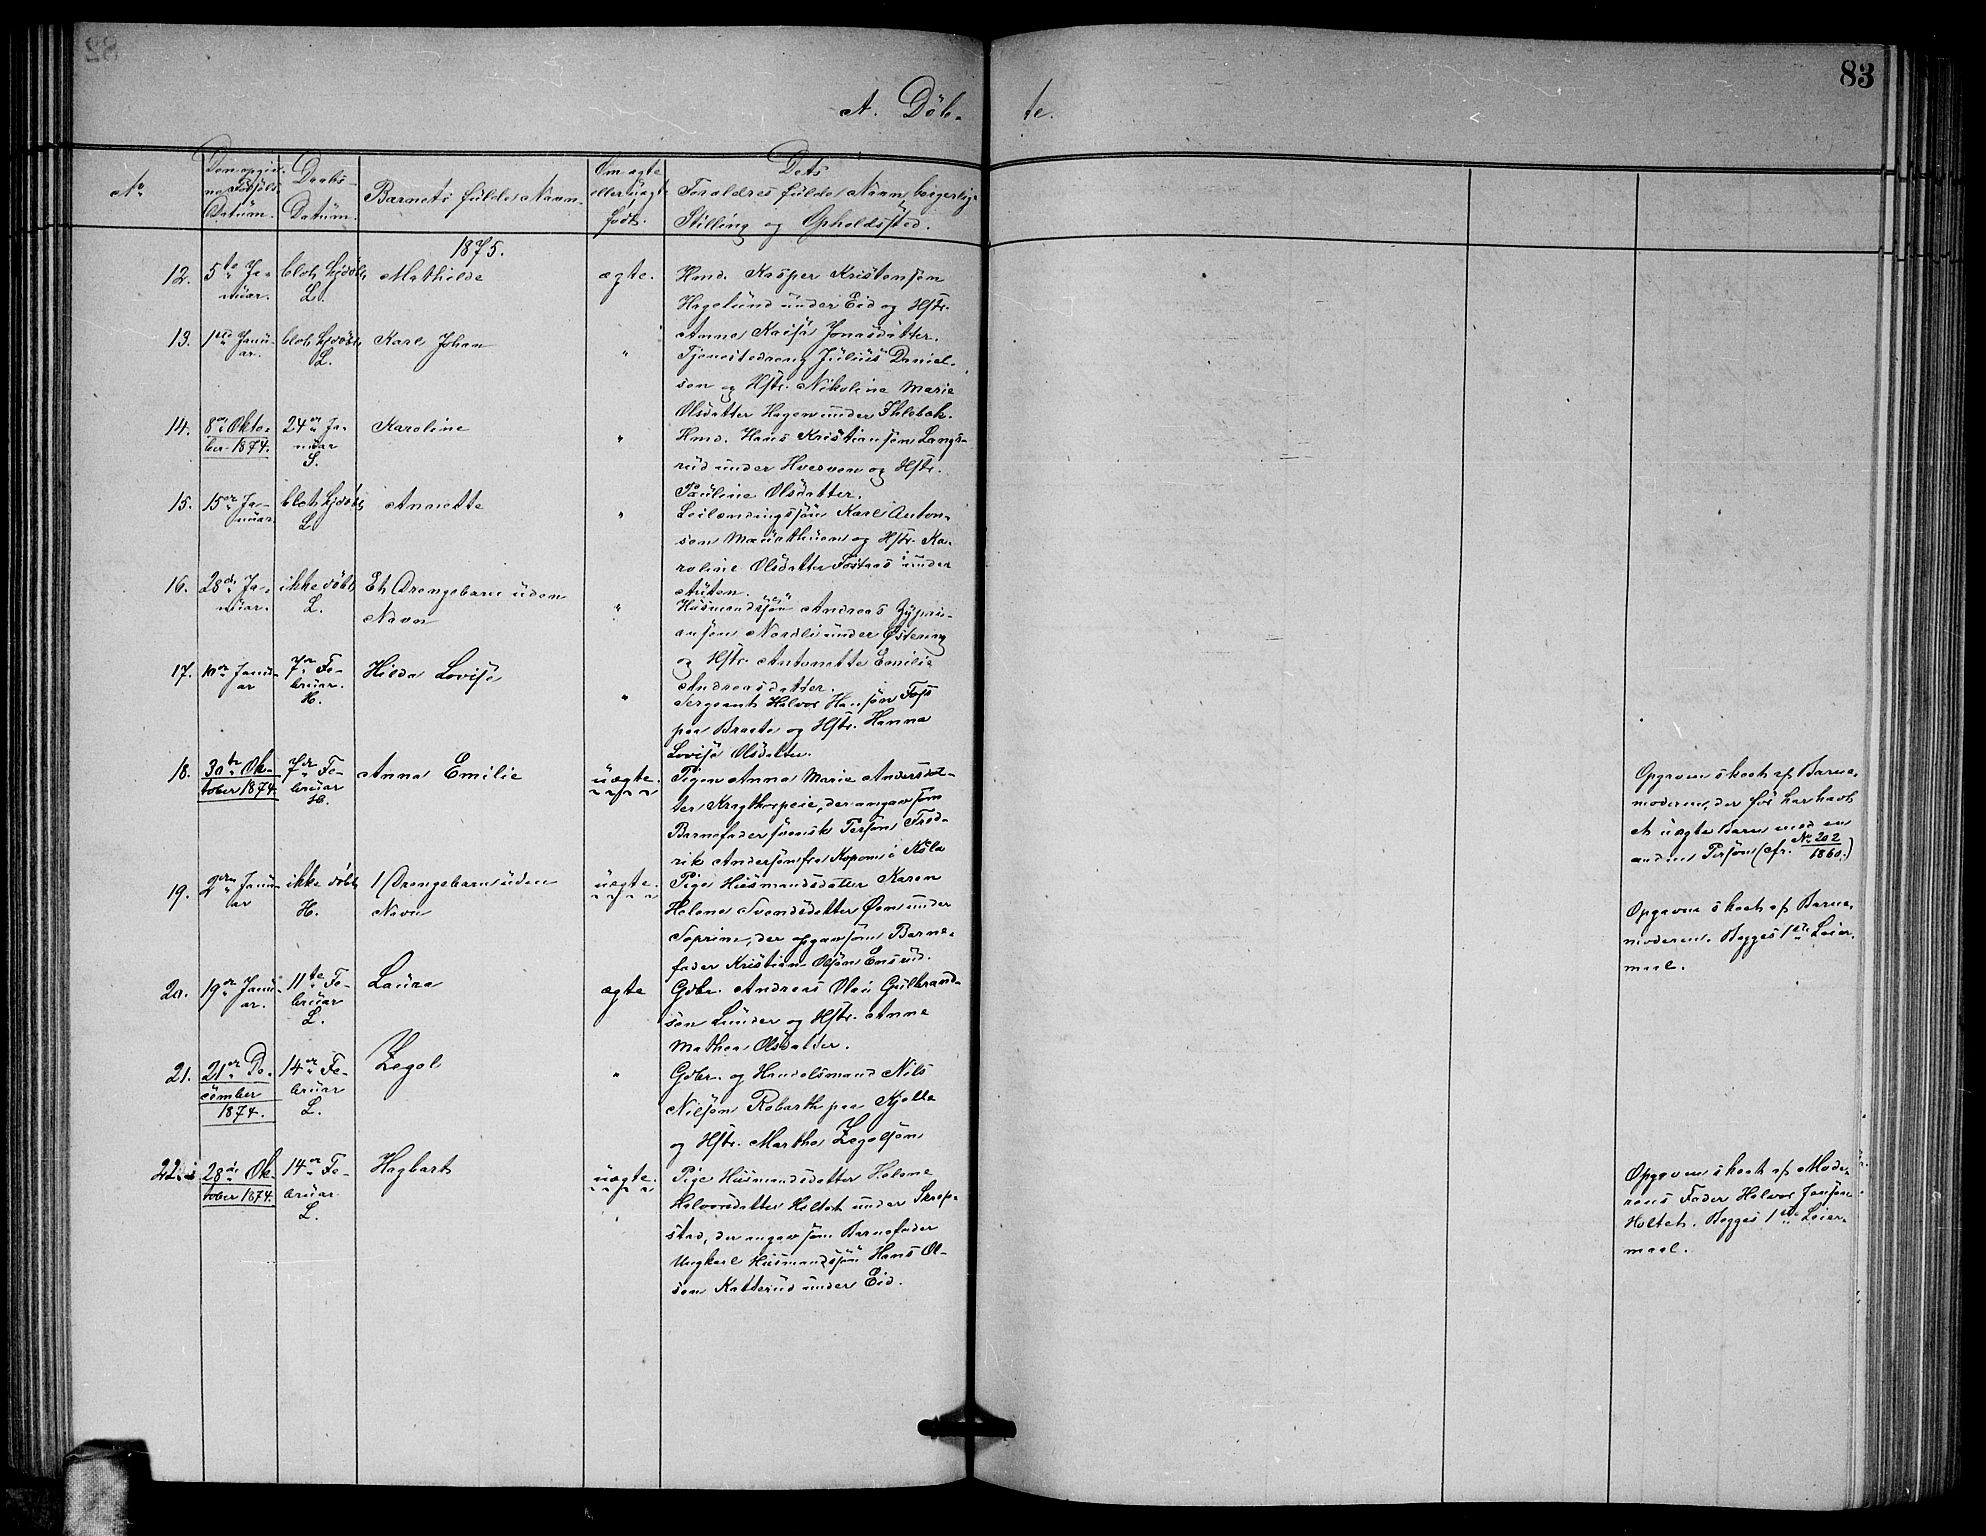 83
A. Döb- te.
No
Den opgiv-
ne Födsels
Datum.
Daabs-
Datum.
Barnets fulde Navn.
Om ægte
eller uægte
födt.
Dets
Forældres fulde Navn, borgerlige
Stilling og Opholdssted.
1875.
12. 5te Ja-
nuar.
blot hjdöbt
L.
Mathilde
ægte.
Hmd. Kasper Kristensen
Hagelund under Eid og Hstr.
Anne Kaisa Jonasdatter.
13. 1ste Janu-
ar.
blot hjdöbt
L.
Karl Johan
"
Tjenestedreng Julius Daniel-
sen og Hstr. Nikoline Marie
Olsdatter Hagen under Ihlebæk.
14. 8de Okto-
ber 1874.
24de Ja-
nuar
S.
Karoline
"
Hmd. Hans Kristiansen Langs-
rud under Hverven og Hstr.
Pauline Olsdatter.
15. 15de Ja-
nuar.
blot hjdöbt
L.
Annette
"
Leilændingssön Karl Anton-
sen og Hstr. Ka-
roline Olsdatter under
16. 28de Ja-
nuar.
ikke döbt
L.
Et Drengebarn uden
Navn
"
Husmandssön Andreas Zypri-
ansen Nordli under Östering
og Hstr. Antonette Emilie
Andreasdatter.
17. 10de Janu-
ar
7de Fe-
bruar.
H.
Hilda Lovise
"
Sergeant Halvor Hansen Foss
paa Braate og Hstr. Hanna
Lovise Olsdatter.
18. 30te Ok-
tober 1874.
7de Fe-
bruar
H.
Anna Emilie
uægte.
Pigen Anna Marie Andersdat-
ter Kragthorpeie, der angav som
Barnefader svensk Person Fred-
rik Andersen fra Kopom i Kjla
Opgaven skeet af Barne-
moderen, der för har havt
et uægte Barn med en
anden Person (cfr. No 202
1860.)
19. 2den Janu-
ar
ikke döbt
H.
1 Drengebarn uden
Navn
uægte.
Pige Husmandsdatter Karen
Helene Svendsdatter Öen under
Soprim, der opgav som Barne-
fader Kristian Olsen Ensrud.
Opgaven skeet af Barne-
moderen. Begges 1ste Leier-
maal.
20. 19de Janu-
ar.
11te Fe-
bruar
L.
Laura
ægte
Gdbr. Andreas Olai Gulbrand-
sen Lunder og Hstr. Anne
Mathea Olsdatter.
21. 21de De-
cember
1874.
14de Fe-
bruar
L.
Zegol
"
Gdbr. og Handelsmand Nils
Nilsen Robarth paa Kjölle
og Hstr. Marthe Zegolsen
22. 28de Ok-
tober 1874.
14de Fe-
bruar
L.
Hagbart
uægte.
Pige Husmandsdatter Helene
Halvorsdatter Holtet under Skrep-
stad, der angav som Barnefader
Ungkarl Husmandssön Hans Ol-
sen Katterud under Eid.
Opgaven skeet af Mode-
rens Fader Halvor Jansen
Holtet. Begges 1ste Leier-
maal.